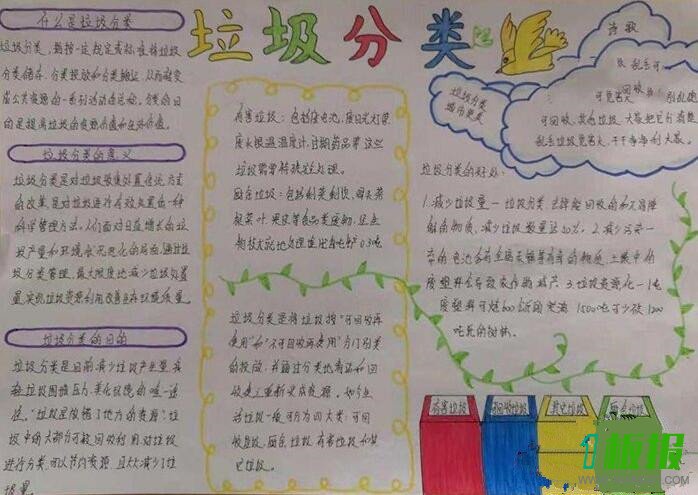 垃圾分类
什么是垃圾分类
垃圾分类,
分类储存、分类投放和分类搬运,从而转变
成公共资源的一系列活动的总称。分类的目
的是提高垃圾的资源价值和经济价值。
垃圾分类的意义
垃圾分类是对垃圾收集处置传统方式
的改革,是对垃圾进行有效处置的一种
科学管理方法。人们面对日益增长的垃
圾产量和环境状况恶化的局面,通过垃
圾分类管理,最大限度地减少垃圾处置
量,实现垃圾资源利用改善生存环境质量。
垃圾分类的目的
垃圾分类是目前减少垃圾产生量,
垃圾围城压力,美化环境的唯一途
径。
圾中的大部分可被回收利用,对垃圾
进行分类,可以节约资源,且大大减少了垃
圾量。
有害垃圾:包括废电池、废日光灯管、
废水银温度计、过期药品等,这些
垃圾需要特殊安全处理。
厨余垃圾:包括剩菜剩饭、骨头、菜
根菜叶、果皮等食品类废物,
0.3吨
垃圾分类是将垃圾按“可回收再
使用”和“不可回收再使用”分门别类
的投放,并通过分类地清运和回
收使之重新变成资源。
活垃圾一般可分为四大类:可回
收垃圾、厨余垃圾、有害垃圾和其
它垃圾。
诗歌
乱丢可
回收
可危害大
回收,其余垃圾
乱丢垃圾危害大,干干净净利大家。
垃圾分类
城市更美
垃圾分类的好处:
1.减少垃圾量一垃圾分类,去掉能回收的和不易降
解的物质,减少垃圾数量达50%。2.减少污染一
有害的物质,土壤中的
废塑料会导致农作物减产。3.垃圾变资源化一1吨
废塑料可炼600 1500吨可少砍1200
吨
有害垃圾
可回收垃圾
其它垃圾
厨余垃圾
板报